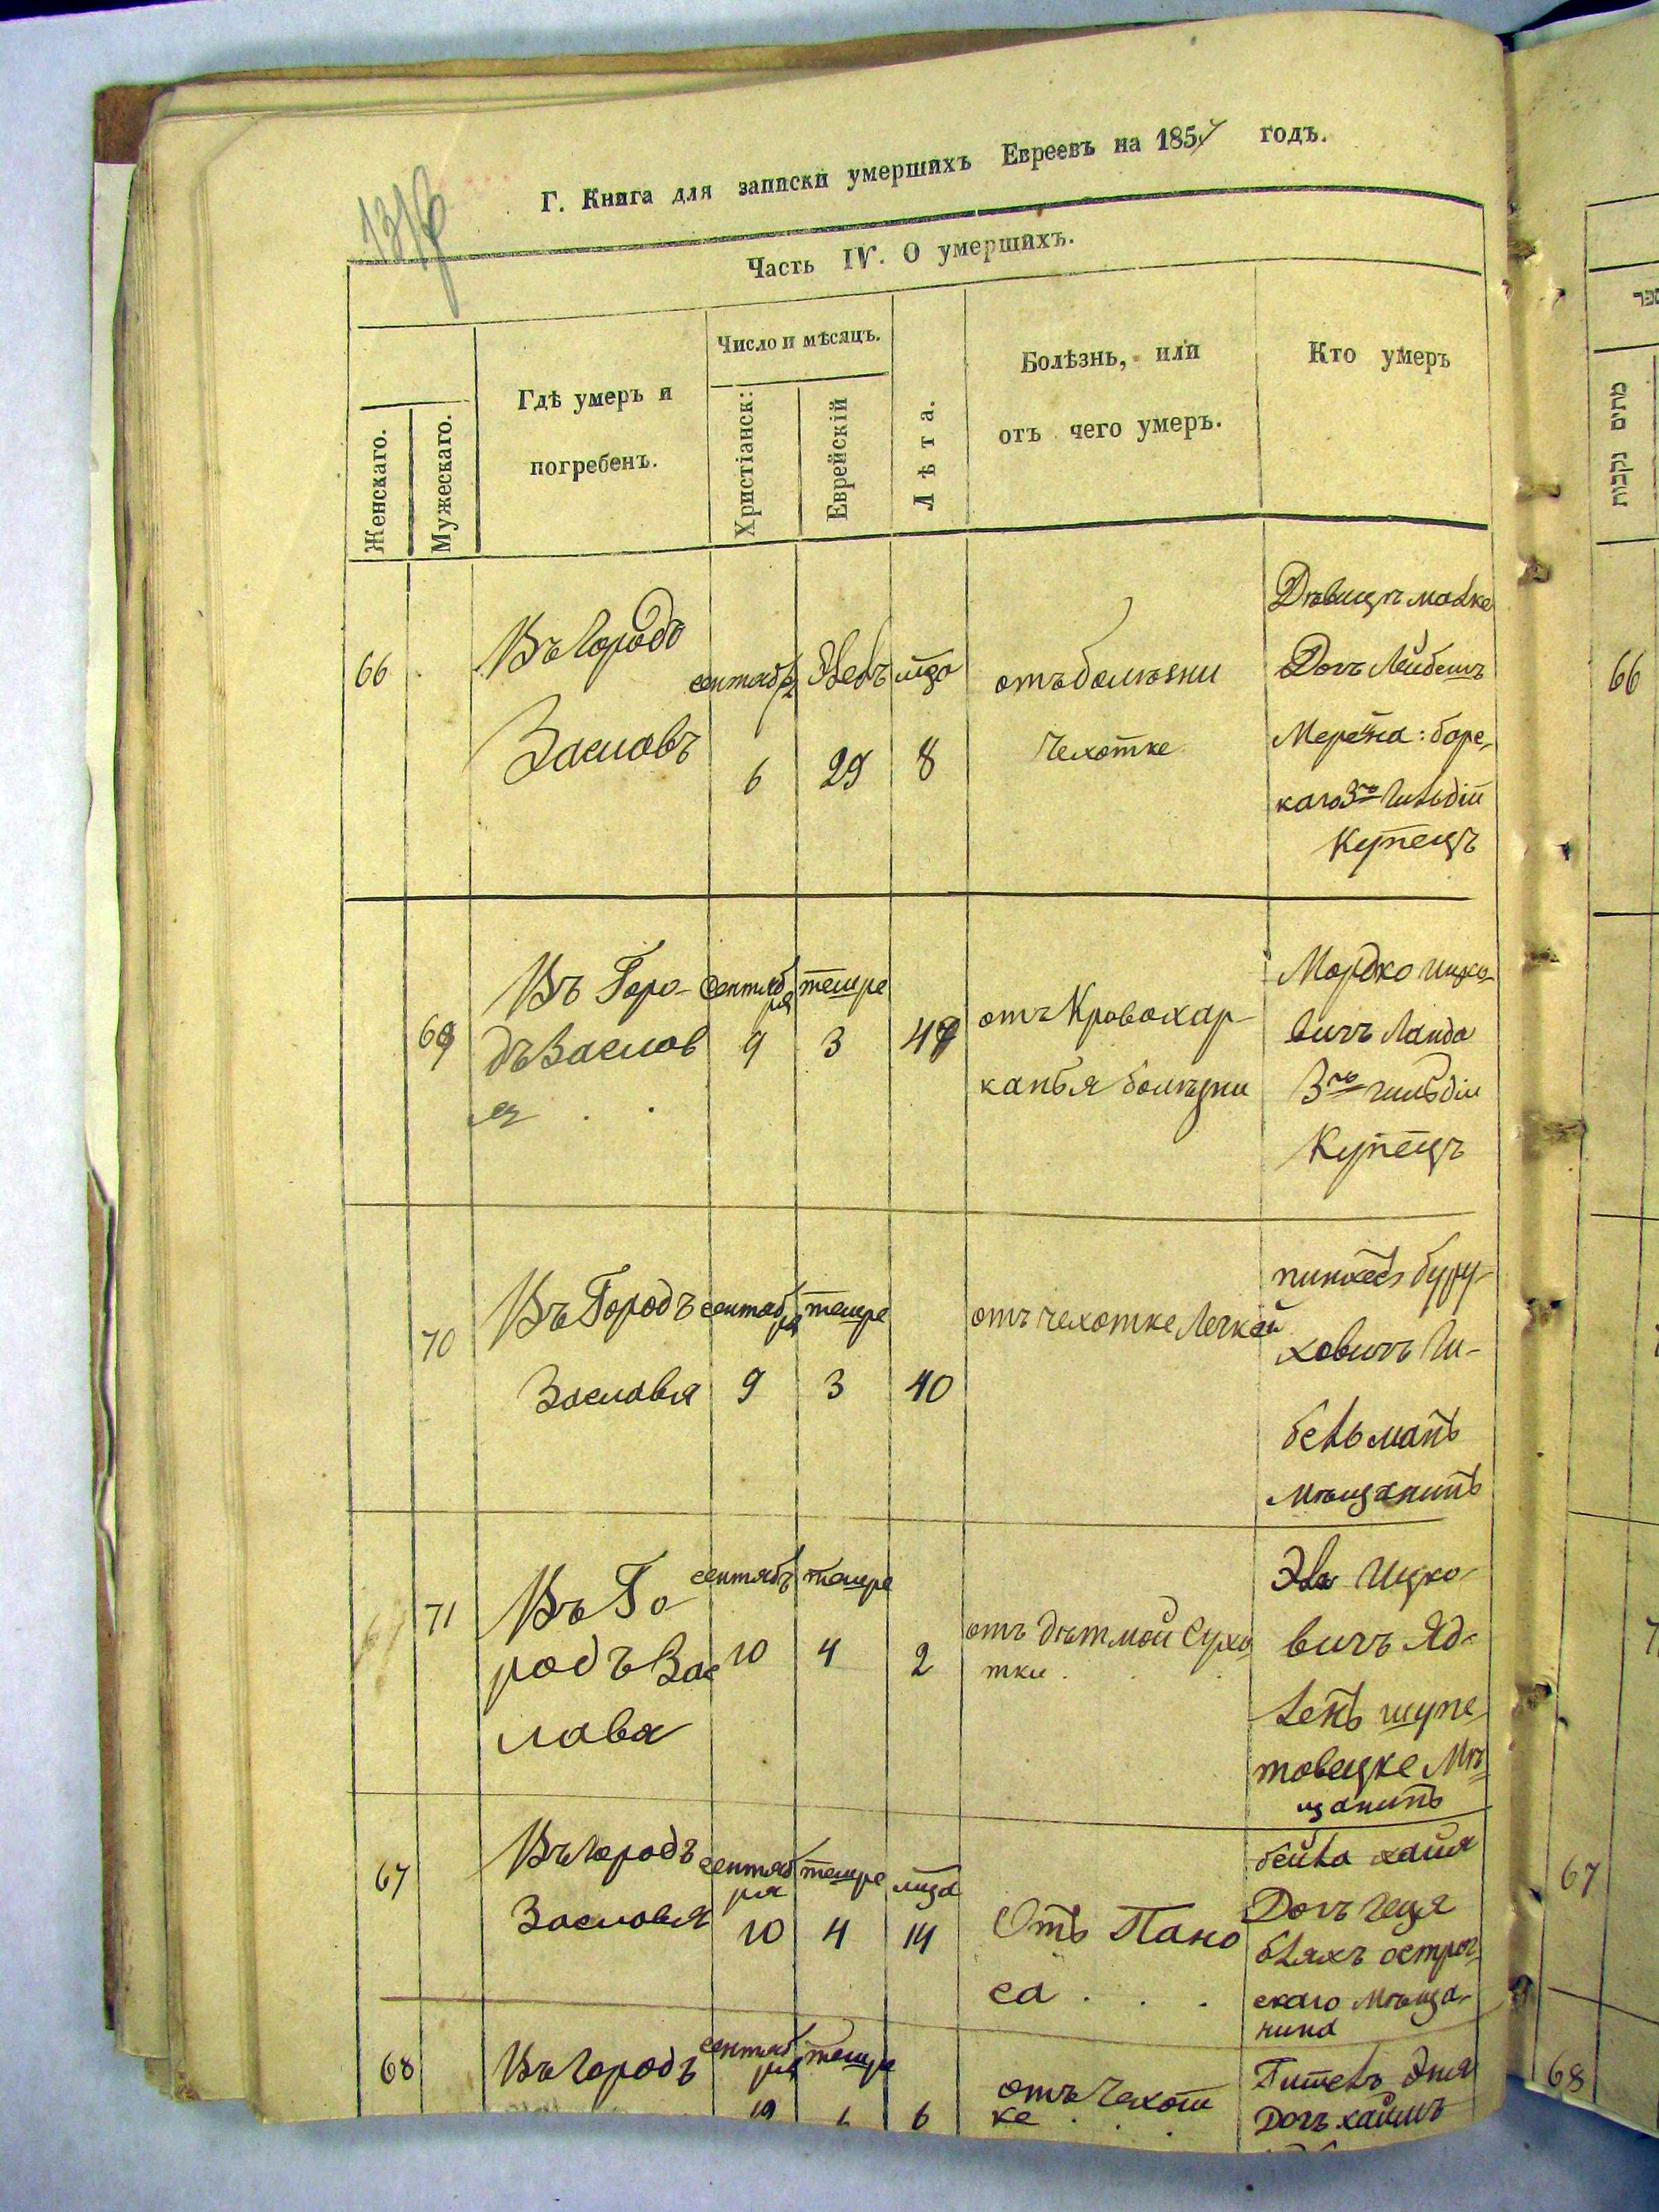 Г. Книга для записки умершихъ Евреевъ на 185 годъ.
Часть IV. О умершихъ.
Женскаго.
Мужескаго.
Гдѣ умеръ и
погребенъ.
Число и мѣсяцъ.
Христіанск:
Еврейскій
Лѣта.
Болѣзнь, или
отъ чего умеръ.
Кто умеръ
66
Въ городѣ
Заславъ
сентября
6
29
8
отъ болѣзни
Чехотке
Дѣвицъ малке
Дочъ Лейбешъ
каго 3го Гильдіи
Купецъ
69
Въ Горо-
дѣ Заслов
я
Сентяб
ря
9
тешре
3
отъ Кровохар-
канья болѣзни
Мордко ицко-
вичъ Ланда
3го гильдіи
Купецъ
70
Въ Городѣ
Заславля
сентяб
ря
9
тешре
3
40
отъ чехотке Легкой
пинхесъ буру-
ховичъ Ги-
бельманъ
мѣщанинъ
71
Въ Го-
родѣ Зас
лава
сентябъ
10
тешре
4
2
отъ дѣтмой Сухо
тки
Эля Ицко-
вичъ Яд-
ленъ шупе-
товецке Мѣ-
щанинъ
67
Въ городѣ
Заславля
сентяб
ря
10
тешре
4
14
Отъ Пано
са
бейла хаия
Дочъ
острог-
скаго мѣща-
нина
68
Въ городѣ
сентяб
ря
тешре
6
отъ Чехот
ке
Дочъ хаимъ
ספר
מתים נקבות
66
67
68